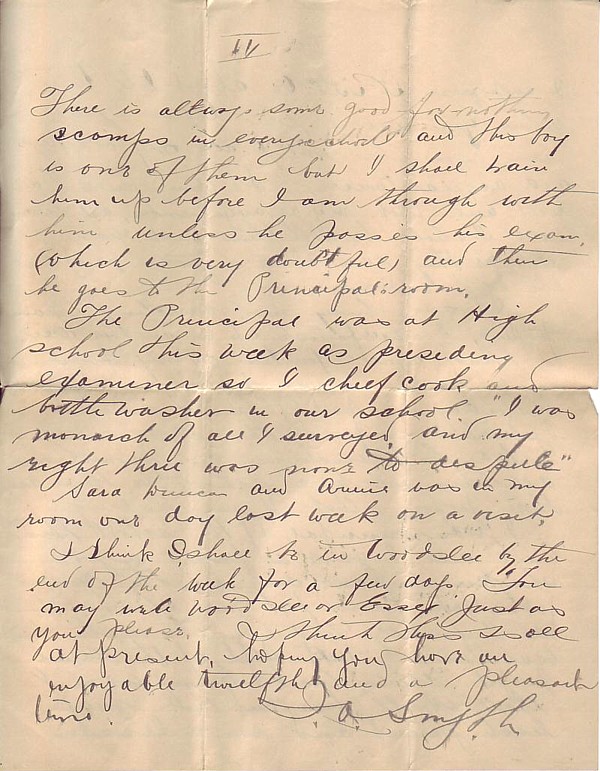 IV
There is allways some good for nothing
scamps in every school and this boy
is one of them but I shall train
him up before I am through with
him unless he passes his exam.
(which is very doubtful) and then
he goes to the Principal's room.
The Principal was at High
school this week as presiding
examiner so I chief cook and
bottle washer in our school "I was
monarch of all I surveyed and my
right there was none to dispute"
Sara Duncan and Annie was in my
room one day last week on a visit.
I think I shall be in Woodslee by the
end of the week for a few days. You
may write Woodslee or Essex Just as
you please. I think this is all
at present, hoping you have an
enjoyable twelfth and a pleasant
time.
J. A. Smyth